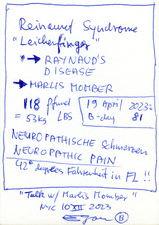 Reinawd Syndrome
"Leichenfinger"
→ RAYNAUD'S
DISEASE
→ MARLIS MOMBER
118 Pfund
= 53kg LBS
19 April 2023:
B-day 81
NEUROPATHISCHE Schmerzen
NEUROPATHIC PAIN
42° degrees Fahrenheit in FL!!
"Talk w/ Marlis Momber"
NYC 10 XII 2023
B